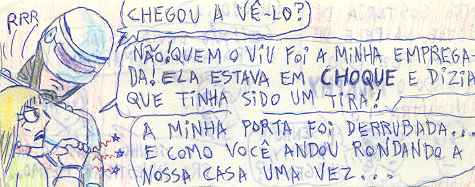 RRR
(CHEGOU A VÊ-LO?)
NÃO! QUEM O VIU FOI A MINHA EMPREGA-
DA! ELA ESTAVA EM CHOQUE E DIZIA
QUE TINHA SIDO UM TIRA!
A MINHA PORTA FOI DERRUBADA...
E COMO VOCÊ ANDOU RONDANDO A
NOSSA CASA UMA VEZ...